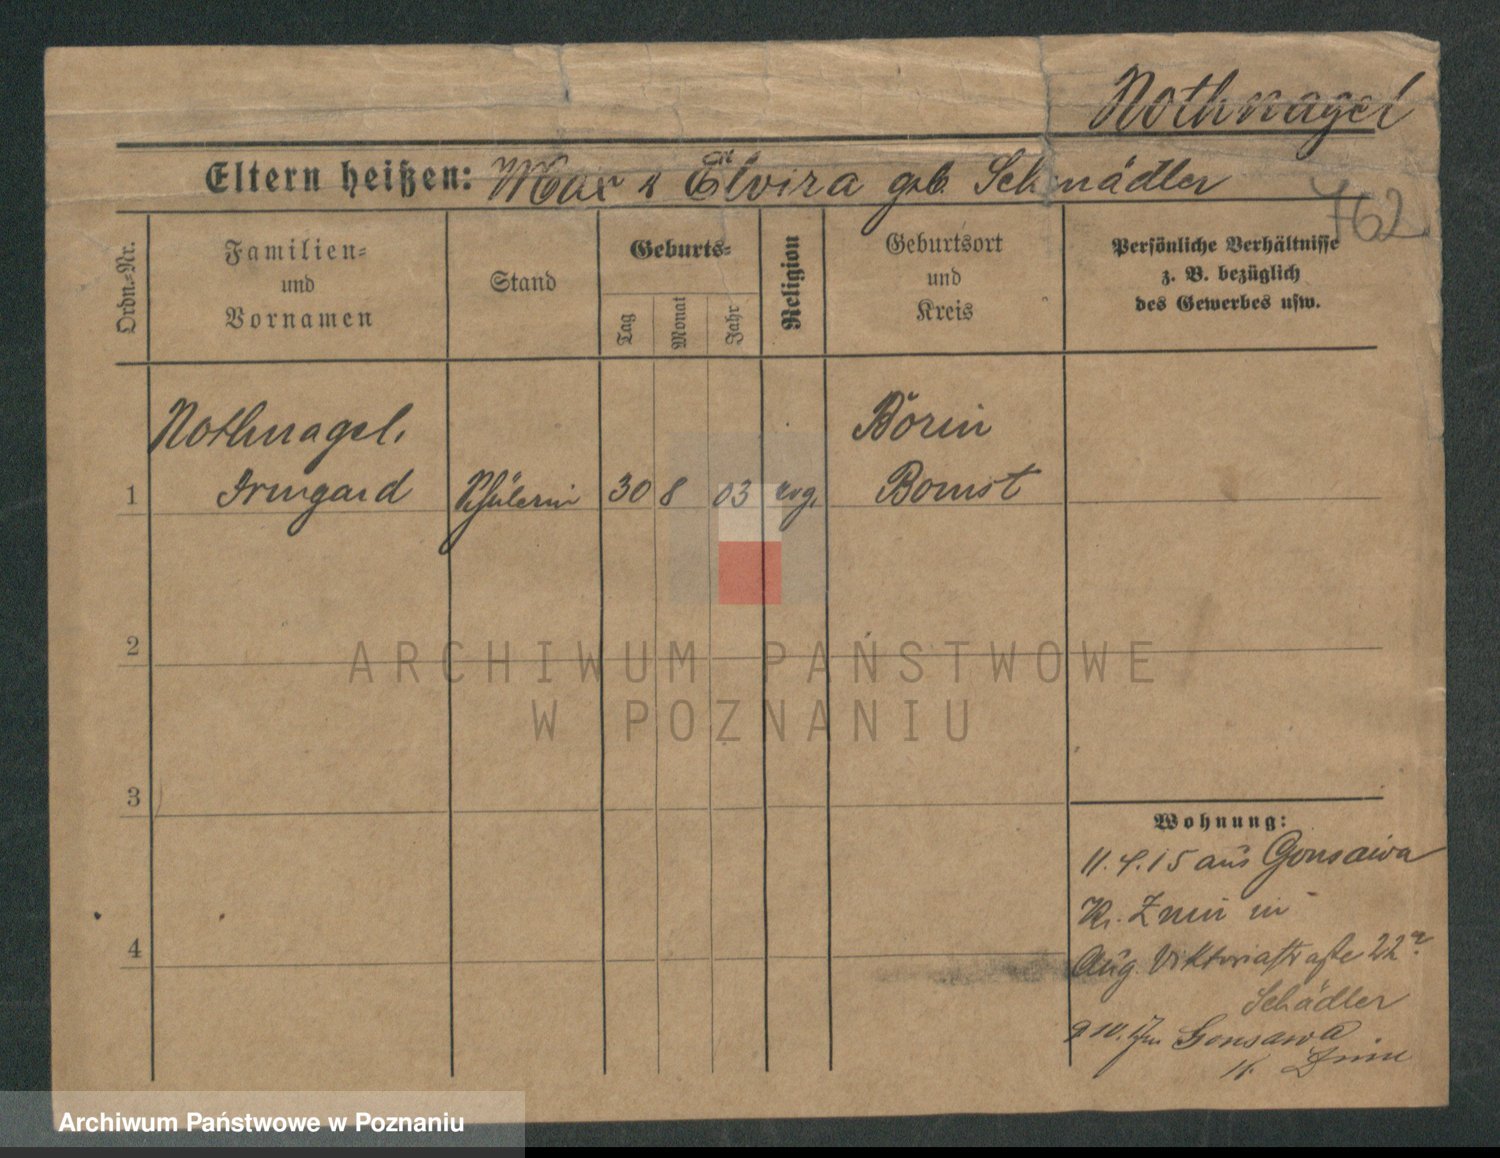 Nothnagel
Eltern heißen: Max & Elvira geb. Schmädler
762
Ordn.-Nr.
Familien-
und
Vornamen
Stand
Geburts-
Tag
Monat
Jahr
Religion
Geburtsort
und
Kreis
Persönliche Verhältnisse
z. B. bezüglich
des Gewerbes usw.
Nothnagel.
Börin
1 Irmgard Schülerin 30 8 03 evg. Bomst
2
3
4
Wohnung:
11.4.15 aus Gonsawa
Kr. Znin in
Aug Viktoriastraße 22a.
Schädler
Gonsawa
K. Znin
ARCHIWUM PAŃSTWOWE
W POZNANIU
Archiwum Państwowe w Poznaniu